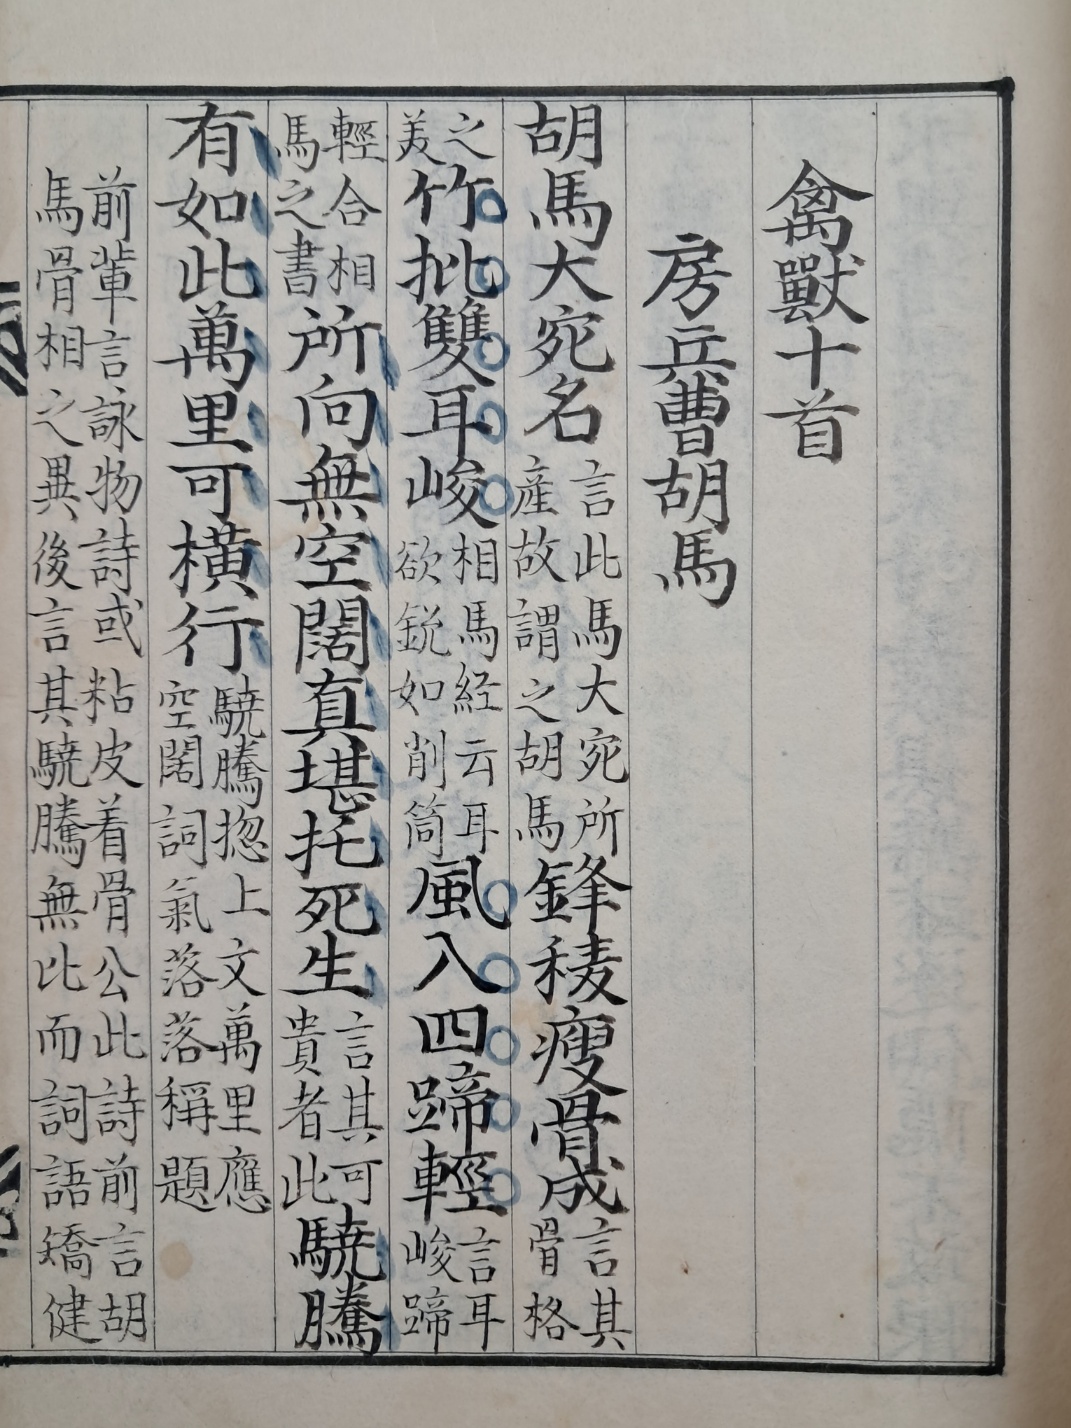 禽獸十首
房兵曹胡馬
胡馬大宛名言此馬大宛所產故謂之胡馬鋒稜瘦骨成言其骨格
之美竹批雙耳峻相馬経云耳欲銳如削筒風入四蹄輕言耳峻蹄
輕合相馬之書所向無空闊真堪托死生言其可貴者此驍騰
有如此萬里可橫行驍騰揔上文萬里應空闊詞氣落落稱題
前輩言詠物詩或粘皮着骨公此詩前言胡
馬骨相之異後言其驍騰無比而詞語矯健